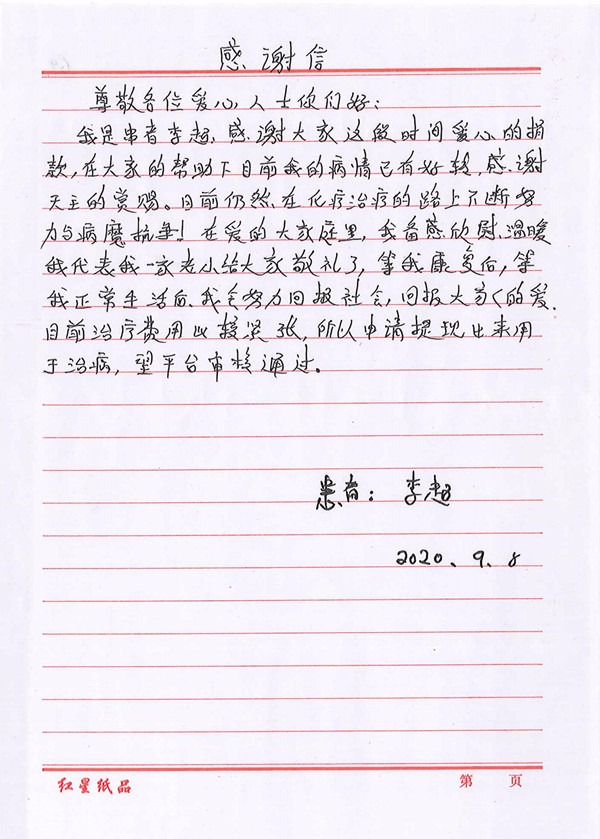 感谢信
尊敬各位爱心人士你们好:
我是患者李超,感谢大家这段时间爱心的捐
款,在大家的帮助下目前我的病情已有好转,感谢
天主的赏赐。目前仍然在化疗治疗的路上不断努
力与病魔抗争!在爱的大家庭里,我备感欣慰、温暖
我代表我一家老小给大家敬礼了,等我康复后,等
我正常生活后,我会努力回报社会,回报大家的爱.
目前治疗费用比较紧张,所以申请提现出来用
于治病,望平台审核通过。
患者:李超
2020.9.8
红星纸品 第 页